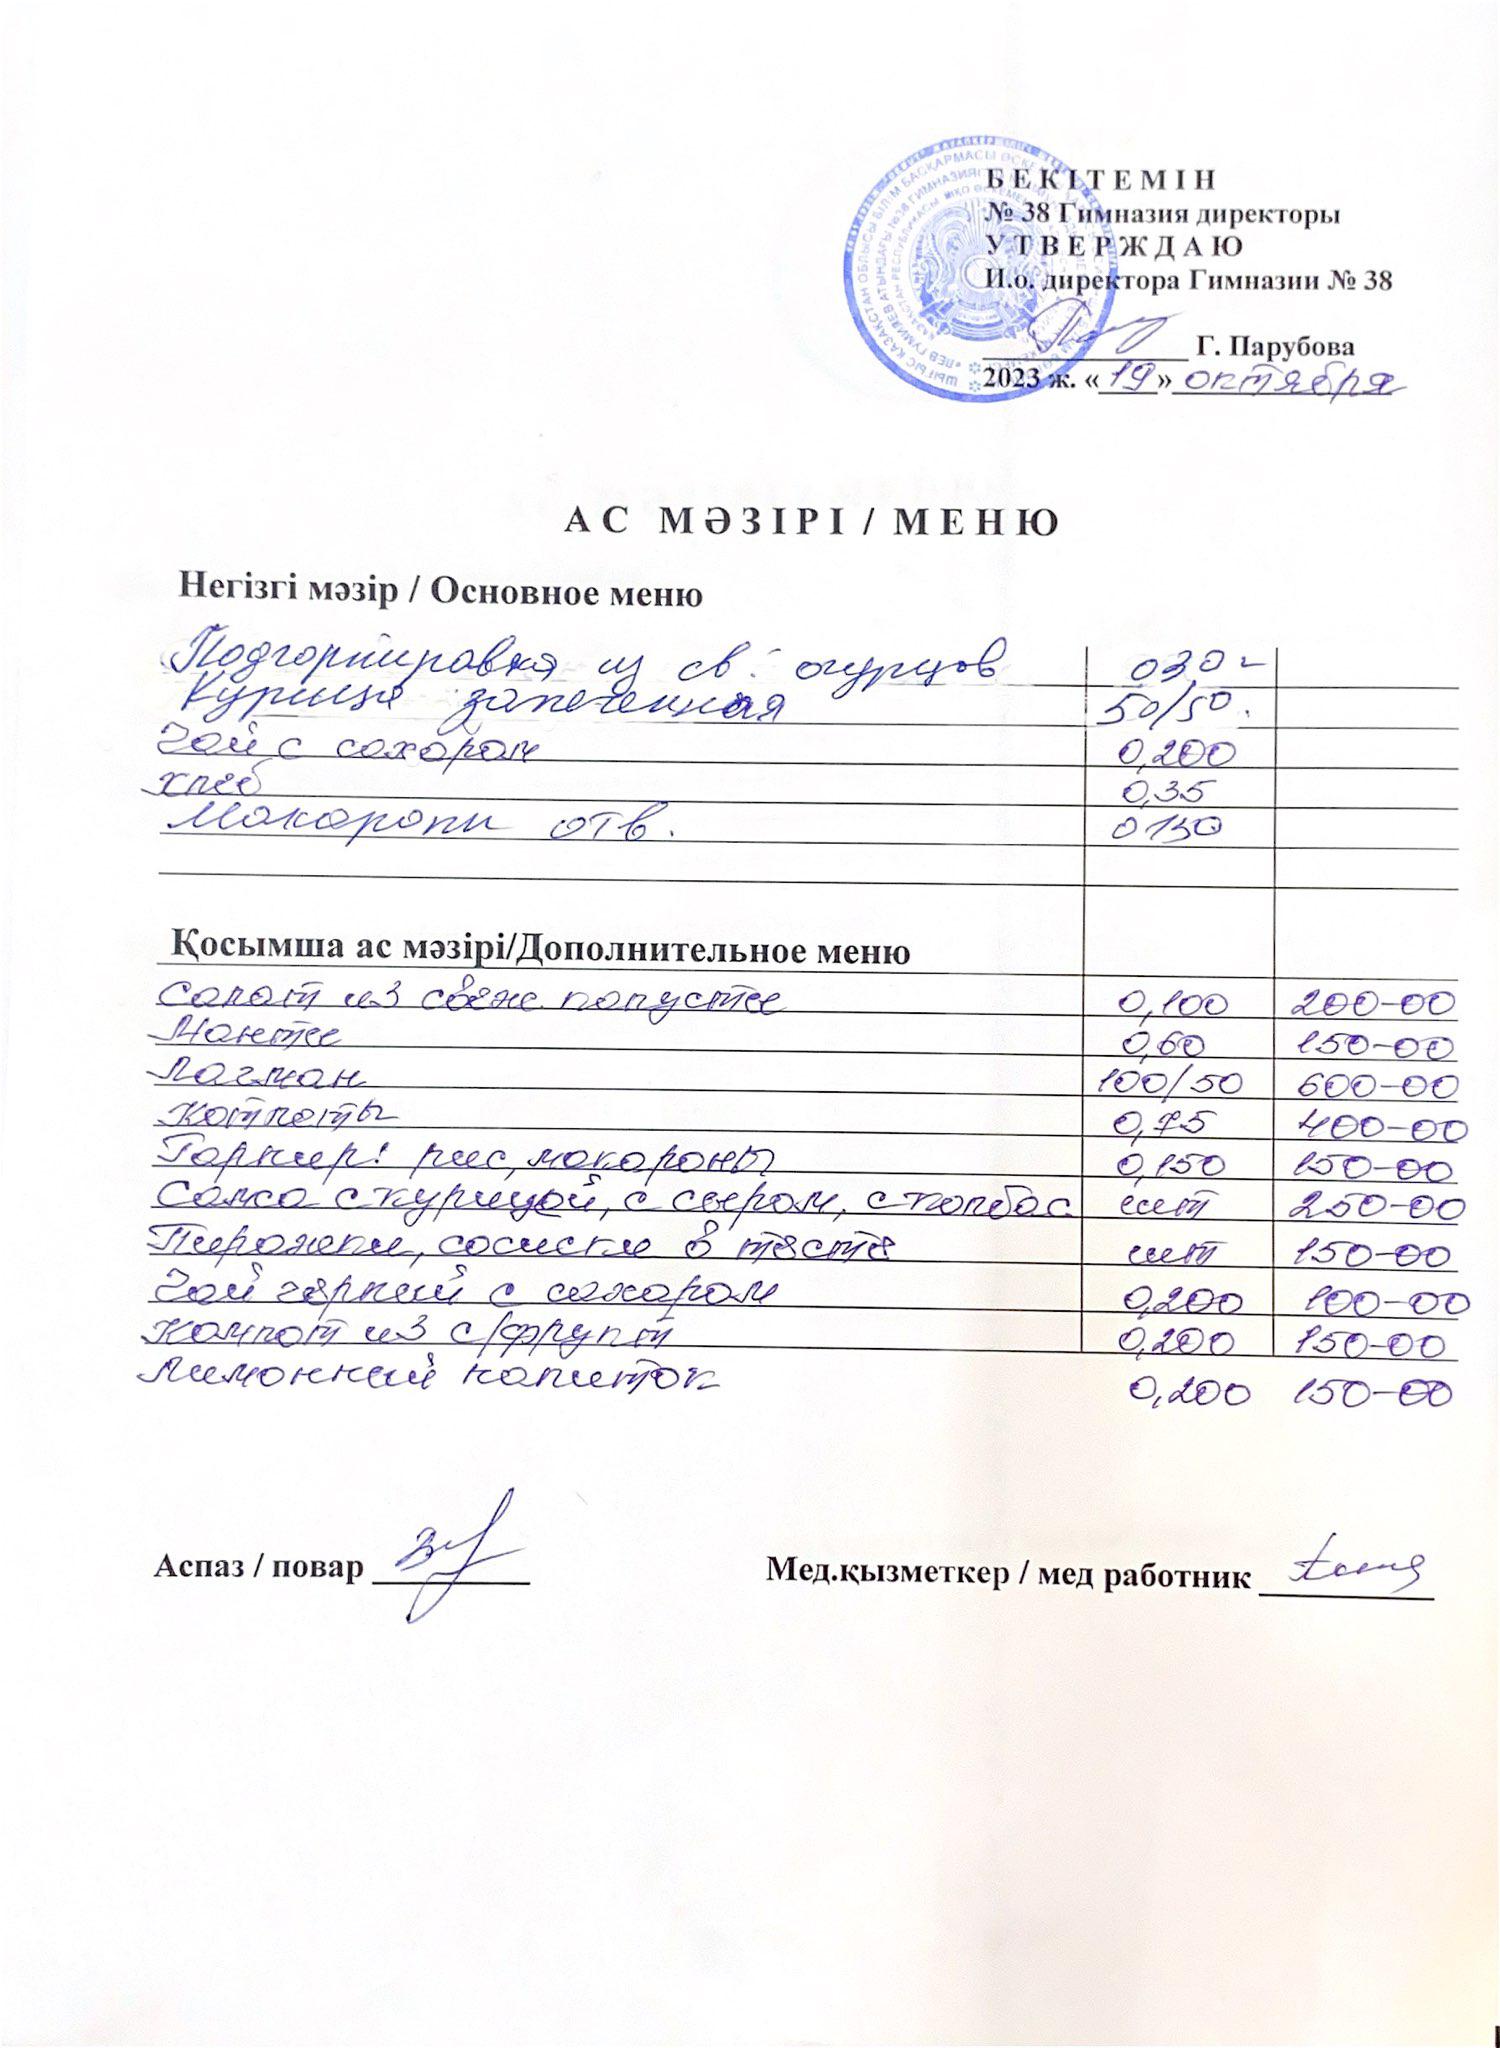 БЕКІТЕМІН
№ 38 Гимназия директоры
УТВЕРЖДАЮ
И.о. директора Гимназии № 38
Г. Парубова
2023 ж. «19» октября
АС МӘЗІРІ / МЕНЮ
Негізгі мәзір / Основное меню
Подгорнировка из св. огурцов 030
Курица запеченная 50/50.
Чай с сахаром 0,200
хлеб 0,35
Макароны отв. 0150
Қосымша ас мәзірі/Дополнительное меню
Салат из свеже капусты 0,100 200-00
Манты 0,60 150-00
Лагман 100/50 600-00
Котлеты 0,75 400-00
Гарнир: рис, макароны 0,150 150-00
Самса с курицой, с сыром, с колбас. шт 250-00
Пирожки, сосиски в тесте шт 150-00
Чай чёрный с сахаром 0,200 100-00
Компот из с/фрукт 0,200 150-00
Лимонный напиток 0,200 150-00
Аспаз / повар Мед.қызметкер / мед работник